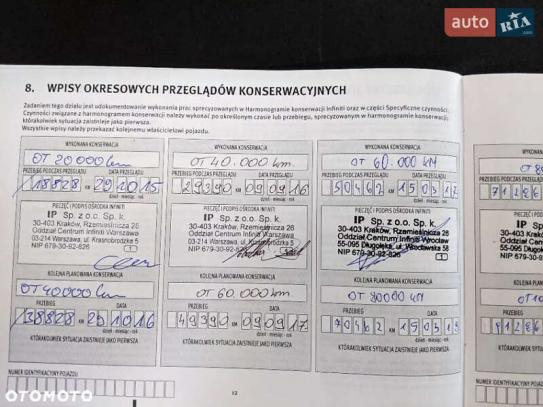 auto RIA.com
8. WPISY OKRESOWYCH PRZEGLĄDÓW KONSERWACYJNYCH
Zadaniem tego działu jest udokumentowanie wykonania prac sprecyzowanych w Harmonogramie konserwacji Infiniti oraz w części Specyficzne czynności.
Czynności związane z harmonogramem konserwacji należy wykonać po określonym czasie lub przebiegu, sprecyzowanym w harmonogramie konserwacji,
którakolwiek sytuacja zaistnieje jako pierwsza.
Wszystkie wpisy należy przekazać kolejnemu właścicielowi pojazdu.
WYKONANA KONSERWACJA
OT 20000 km
PRZEBIEG PODCZAS PRZEGLĄDU DATA
18828 KM
PIECZĘĆ I PODPIS OŚRODKA INFINITI
IP Sp. z o.o. Sp. k.
30-403 Kraków, Rzemieślnicza 26
Oddział Centrum Infiniti Warszawa
03-214 Warszawa, ul. Krasnobrodzka 5
NIP 679-30-92-826
KOLEJNA PLANOWANA KONSERWACJA
OT 40000 km
PRZEBIEG DATA
38828 KM 291016
dzień - miesiąc - rok
KTÓRAKOLWIEK SYTUACJA ZAISTNIEJE JAKO PIERWSZA
WYKONANA KONSERWACJA
OT 40.000 km
PRZEBIEG PODCZAS PRZEGLĄDU DATA
29390 KM 090916
dzień - miesiąc - rok
PIECZĘĆ I PODPIS OŚRODKA INFINITI
IP Sp. z o.o. Sp. k.
30-403 Kraków, Rzemieślnicza 26
Oddział Centrum Infiniti Warszawa
03-214 Warszawa, ul. Krasnobrodzka 5
NIP 679-30-92-
KOLEJNA PLANOWANA KONSERWACJA
OT 60.000 km
PRZEBIEG DATA
49390 KM 090917
dzień - miesiąc - rok
KTÓRAKOLWIEK SYTUACJA ZAISTNIEJE JAKO PIERWSZA
WYKONANA KONSERWACJA
OT 60.000 KM
PRZEBIEG PODCZAS PRZEGLĄDU DATA
50462 KM
dzień - miesiąc - rok
PIECZĘĆ I PODPIS OŚRODKA INFINITI
IP Sp. z o.o. Sp. k.
30-403 Kraków, Rzemieślnicza 26
Oddział Centrum Infiniti Wrocław
55-095 Długołęka, ul. Wrocławska 58
NIP 679-30-92-826
KOLEJNA PLANOWANA KONSERWACJA
OT 80000 KM
PRZEBIEG DATA
70462 KM
dzień - miesiąc - rok
KTÓRAKOLWIEK SYTUACJA ZAISTNIEJE JAKO PIERWSZA
NUMER IDENTYFIKACYJNY POJAZDU
12
OTOMOTO